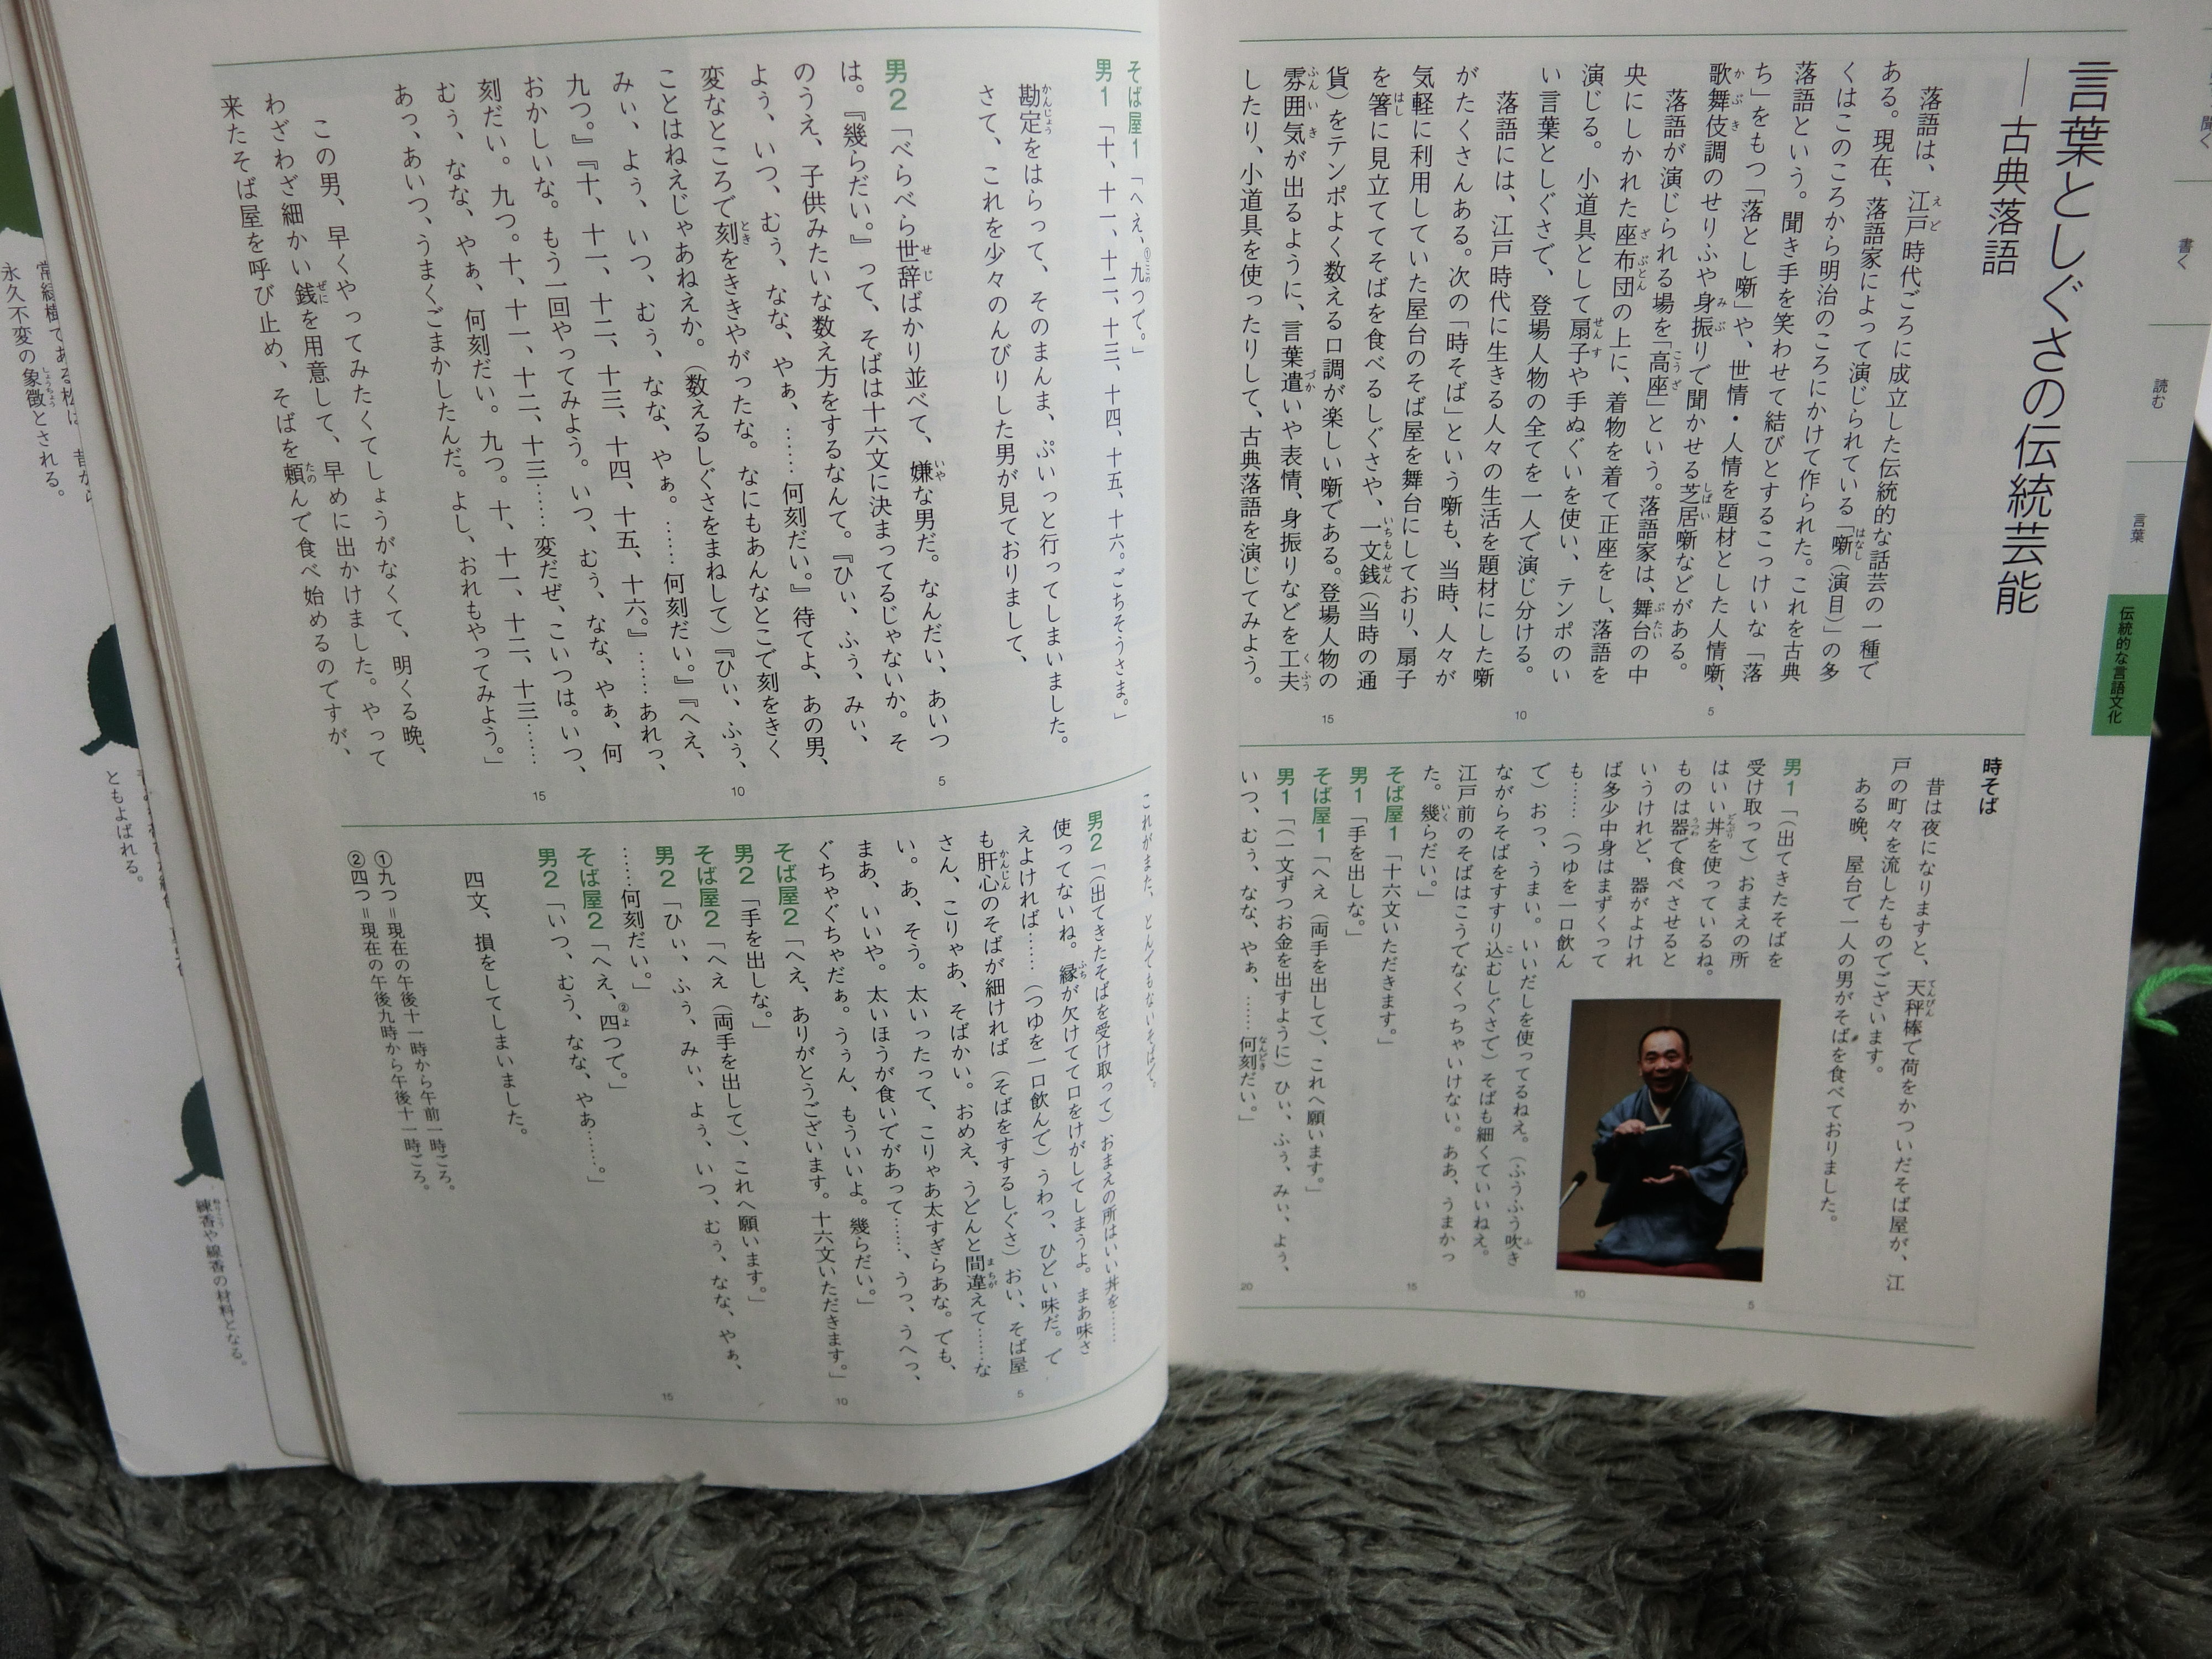 聞く
書く
読む
言葉
伝統的な言語文化
言葉としぐさの伝統芸能
――古典落語
落語は、江戸時代ごろに成立した伝統的な話芸の一種で
ある。現在、落語家によって演じられている「噺(演目)」の多
くはこのころから明治のころにかけて作られた。これを古典
落語という。聞き手を笑わせて結びとするこっけいな「落
ち」をもつ「落とし噺」や、世情・人情を題材とした人情噺、
歌舞伎調のせりふや身振りで聞かせる芝居噺などがある。
落語が演じられる場を「高座」という。落語家は、舞台の中
央にしかれた座布団の上に、着物を着て正座をし、落語を
演じる。小道具として扇子や手ぬぐいを使い、テンポのい
い言葉としぐさで、登場人物の全てを一人で演じ分ける。
落語には、江戸時代に生きる人々の生活を題材にした噺
がたくさんある。次の「時そば」という噺も、当時、人々が
気軽に利用していた屋台のそば屋を舞台にしており、扇子
を箸に見立ててそばを食べるしぐさや、一文銭(当時の通
貨)をテンポよく数える口調が楽しい噺である。登場人物の
雰囲気が出るように、言葉遣いや表情、身振りなどを工夫
したり、小道具を使ったりして、古典落語を演じてみよう。
5
10
15
時そば
昔は夜になりますと、天秤棒で荷をかついだそば屋が、江
戸の町々を流したものでございます。
ある晩、屋台で一人の男がそばを食べておりました。
男1「(出てきたそばを
受け取って)おまえの所
はいい丼を使っているね。
ものは器で食べさせると
いうけれど、器がよけれ
ば多少中身はまずくって
も……(つゆを一口飲ん
で)おっ、うまい。いいだしを使ってるねえ。(ふうふう吹き
ながらそばをすすり込むしぐさで)そばも細くていいねえ。
江戸前のそばはこうでなくっちゃいけない。ああ、うまかっ
た。幾らだい。」
そば屋1「十六文いただきます。」
男1「手を出しな。」
そば屋1「へえ(両手を出して)、これへ願います。」
男1「(一文ずつお金を出すように)ひぃ、ふぅ、みぃ、よう、
いつ、むぅ、なな、やぁ、……何刻だい。」
5
10
15
20
そば屋1「へえ、①九つで。」
男1「十、十一、十二、十三、十四、十五、十六。ごちそうさま。」
勘定をはらって、そのまんま、ぷいっと行ってしまいました。
さて、これを少々のんびりした男が見ておりまして、
男2「べらべら世辞ばかり並べて、嫌な男だ。なんだい、あいつ
は。『幾らだい。』って、そばは十六文に決まってるじゃないか。そ
のうえ、子供みたいな数え方をするなんて。『ひぃ、ふぅ、みぃ、
よう、いつ、むぅ、なな、やぁ、……何刻だい。』待てよ、あの男、
変なところで刻をききやがったな。なにもあんなとこで刻をきく
ことはねえじゃあねえか。(数えるしぐさをまねして)『ひぃ、ふぅ、
みぃ、よう、いつ、むぅ、なな、やぁ。……何刻だい。』『へえ、
九つ。』『十、十一、十二、十三、十四、十五、十六。』……あれっ、
おかしいな。もう一回やってみよう。いつ、むぅ、なな、やぁ、何
刻だい。九つ。十、十一、十二、十三……変だぜ、こいつは。いつ、
むぅ、なな、やぁ、何刻だい。九つ。十、十一、十二、十三……
あっ、あいつ、うまくごまかしたんだ。よし、おれもやってみよう。」
この男、早くやってみたくてしょうがなくて、明くる晩、
わざわざ細かい銭を用意して、早めに出かけました。やって
来たそば屋を呼び止め、そばを頼んで食べ始めるのですが、
5
10
15
これがまた、とんでもないそばで、
男2「(出てきたそばを受け取って)おまえの所はいい丼を……
使ってないね。縁が欠けてて口をけがしてしまうよ。まあ味さ
えよければ……(つゆを一口飲んで)うわっ、ひどい味だ。で
も肝心のそばが細ければ(そばをすするしぐさ)おい、そば屋
さん、こりゃあ、そばかい。おめえ、うどんと間違えて……な
い。あ、そう。太いったって、こりゃあ太すぎらあな。でも、
まあ、いいや。太いほうが食いでがあって……、うっ、うへっ、
ぐちゃぐちゃだぁ。うぅん、もういいよ。幾らだい。」
そば屋2「へえ、ありがとうございます。十六文いただきます。」
男2「手を出しな。」
そば屋2「へえ(両手を出して)、これへ願います。」
男2「ひぃ、ふぅ、みぃ、よう、いつ、むぅ、なな、やぁ、
……何刻だい。」
そば屋2「へえ、②四つで。」
男2「いつ、むう、なな、やあ……。」
四文、損をしてしまいました。
5
10
15
①九つ＝現在の午後十一時から午前一時ごろ。
②四つ＝現在の午後九時から午後十一時ごろ。
常緑樹である松は、昔から
永久不変の象徴とされる。
ともよばれる。
練香や線香の材料となる。